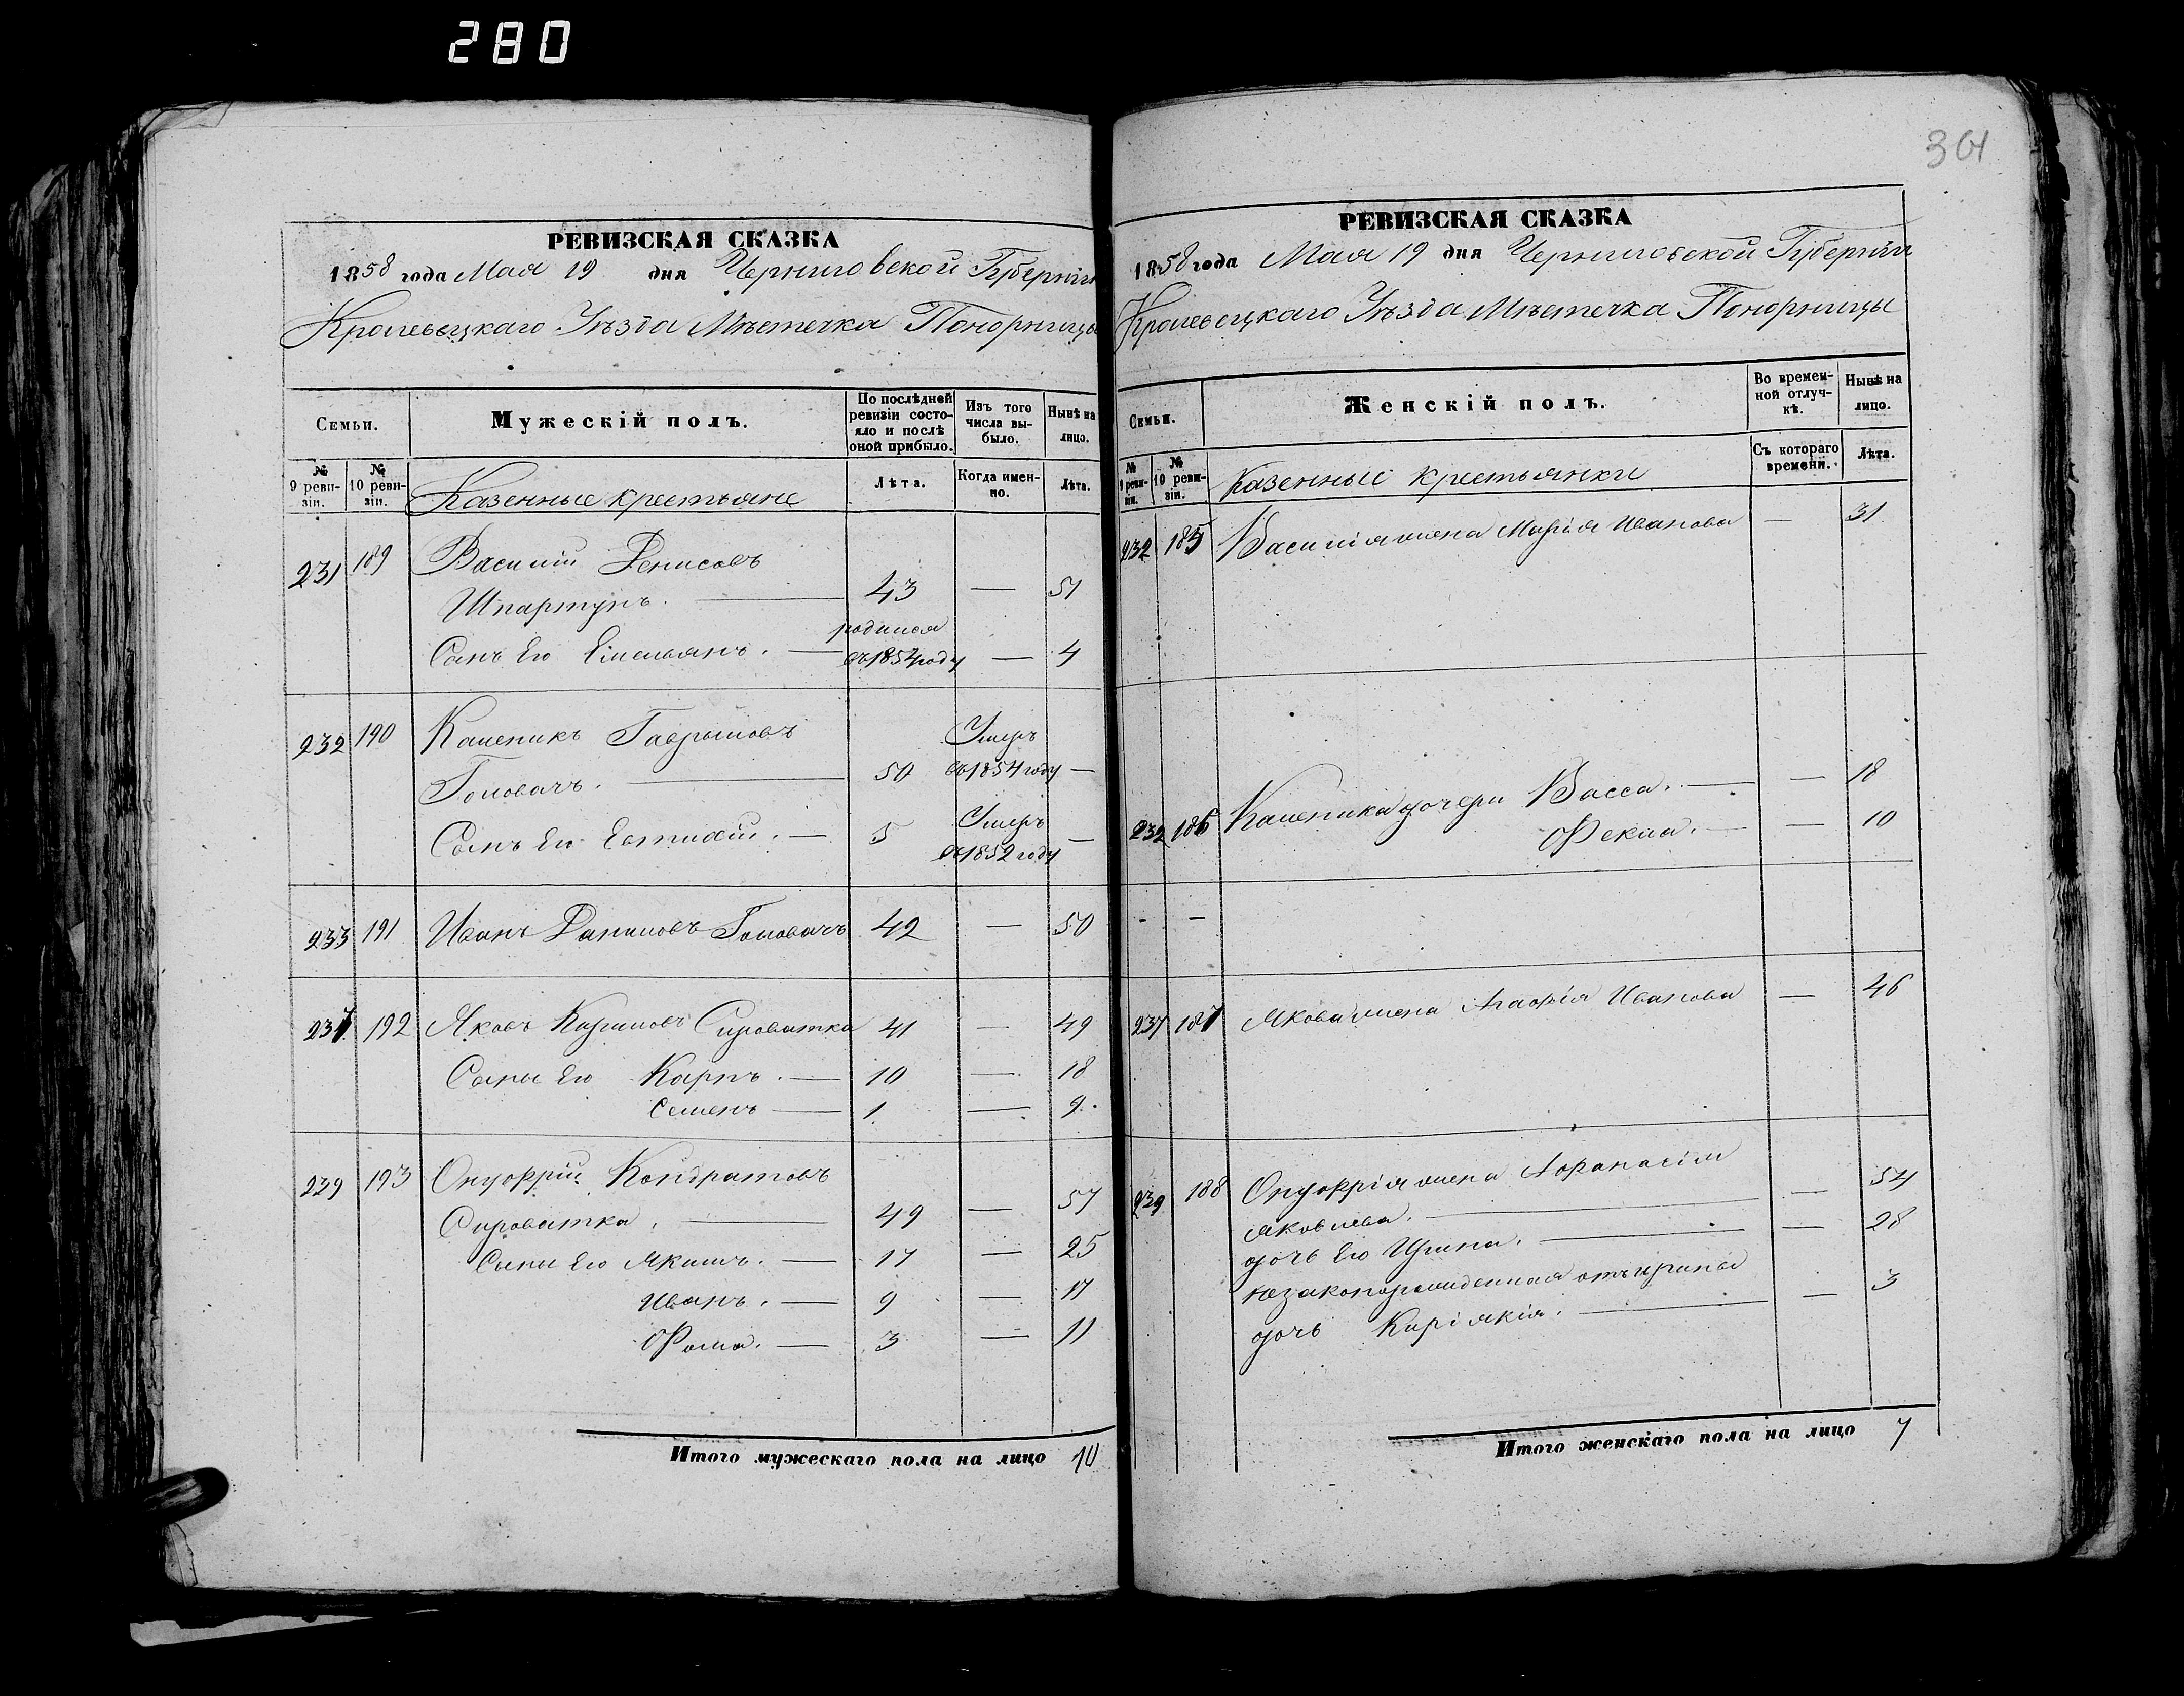 280
361
РЕВИЗСКАЯ СКАЗКА
1858 года Мая 19 дня Черниговской Губерніи
Кролевецкаго Уѣзда Мѣстечка Понорницы
Семьи.
Мужескій полъ.
По послѣдней ревизіи состояло и послѣ оной прибыло.
Изъ того числа выбыло.
Нынѣ на лицо.
№ 9 ревизіи.
№ 10 ревизіи.
Казенные крестьяне
Лѣта.
Когда именно.
Лѣта.
231 189 Василій Денисовъ
Шпартунъ. — 43 — 51
родился
Сынъ его Емельянъ. — въ 1854 году — 4
232 190 Каленикъ Гавриловъ Умеръ
Головачъ. — 50 въ 1854 году —
Умеръ
Сынъ его Евтихій. — 5 въ 1852 году —
233 191 Иванъ Даниловъ Головачъ 42 — 50
237 192 Яковъ Кириловъ Сыроватка 41 — 49
Сыны его Карпъ. — 10 — 18
Семенъ — 1 — 9.
239 193 Онуфрій Кондратовъ
Сыроватка. — 49 — 57
Сыны его Якимъ. — 17 — 25
Иванъ. — 9 — 17
Фома. — 3 — 11
Итого мужескаго пола на лицо 10
РЕВИЗСКАЯ СКАЗКА
1858 года Мая 19 дня Черниговской Губерніи
Кролевецкаго Уѣзда Мѣстечка Понорницы
Семьи.
Женскій полъ.
Во временной отлучкѣ.
Нынѣ на лицо.
№ 9 ревизіи.
№ 10 ревизіи.
Казенныя крестьянки
Съ котораго времени.
Лѣта.
232 185 Василія жена Марія Иванова — 31
232 186 Каленика дочери Васса. — — 18
Фекла. — — 10
- -
237 187 Якова жена Агафія Иванова — 46
239 188 Онуфрія жена Афанасія
Яковлева. — — 54
дочь его Ирина. — — 28
незаконорожденная отъ Ирины
дочь Киріякія. — — 3
Итого женскаго пола на лицо 7